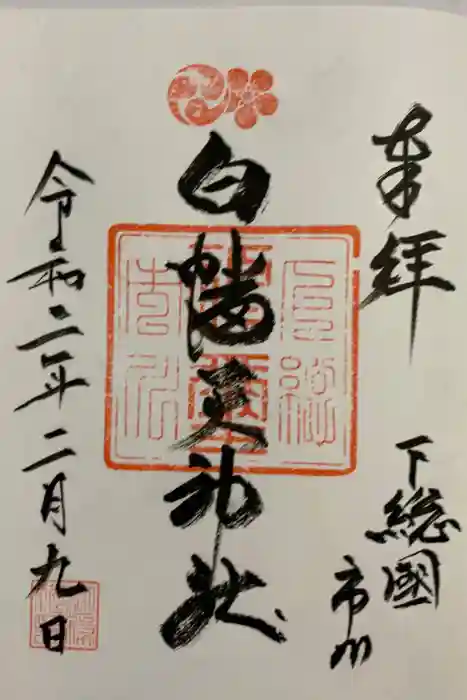 奉拝
下総國
市川
白幡天神社
令和二年二月九日